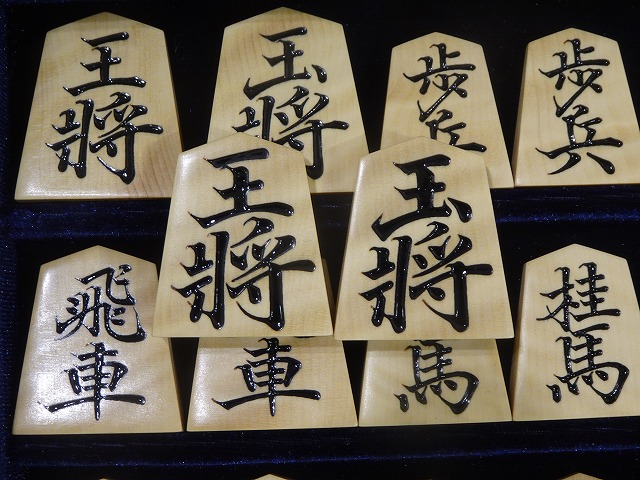 王將
玉將
歩兵
歩兵
王將
玉將
飛車
車
馬
桂馬